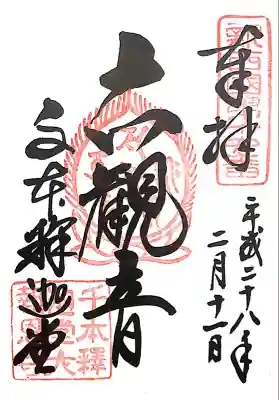 奉拝
平成二十八年
二月十一日
六観音
千本釈迦堂
千本釋
迦堂大
報恩寺